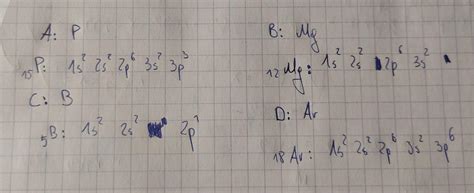 A: P
₁₅P: 1s² 2s² 2p⁶ 3s² 3p³
C: B
₅B: 1s² 2s² 2p¹
B: Mg
₁₂Mg: 1s² 2s² 2p⁶ 3s²
D: Ar
₁₈Ar: 1s² 2s² 2p⁶ 3s² 3p⁶